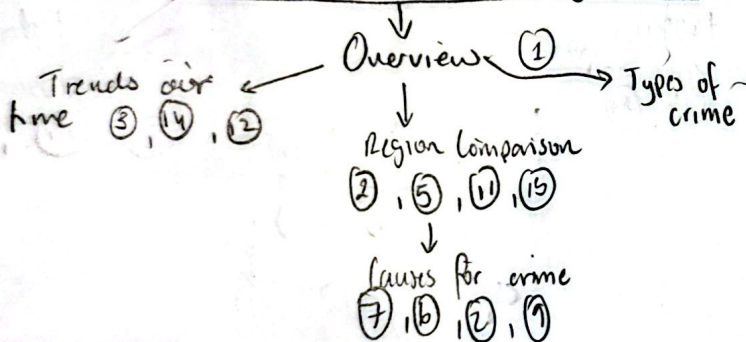 Overview ①
Trends over
time ③, ⑭, ⑫
Types of
crime
Region Comparison
②, ⑤, ⑪, ⑮
Causes for crime
⑦, ⑥, ②, ⑨